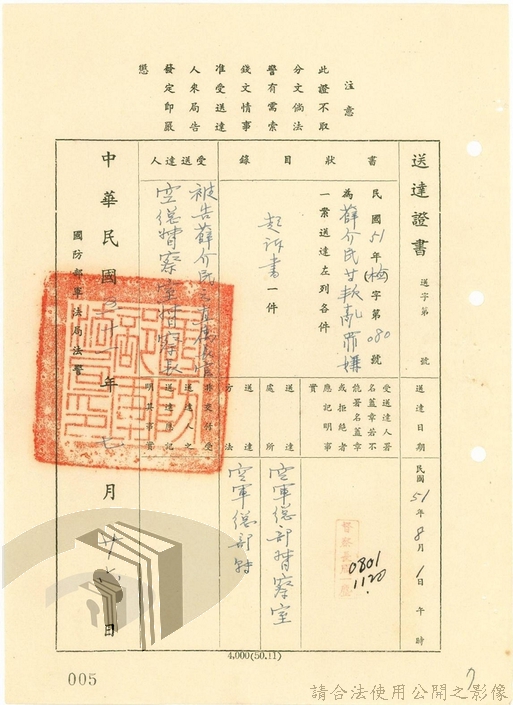 注意
此證不取
分文倘法
警有需索
錢文情事
准受送達
人來局告
發定即嚴
懲
送達證書 送字第 號
送達日期 民國51年8月1日午時
書狀
民國51年(梅)字第080號
為薛介民等叛亂罪嫌
一案送達左列各件
受送達人署名蓋章若不能署名蓋章或拒絕者應記明事實
0801
1120
目錄
起訴書一件
送達處所
空軍總部督察室
送達方法
空軍總部轉
受送達人
被告薛介民之直屬長官
空總督察室督察長
非交付受送達人之送達應記明其事實
中華民國五十一年七月廿六日
國防部軍法局法警
4,000(50.11)
005
請合法使用公開之影像